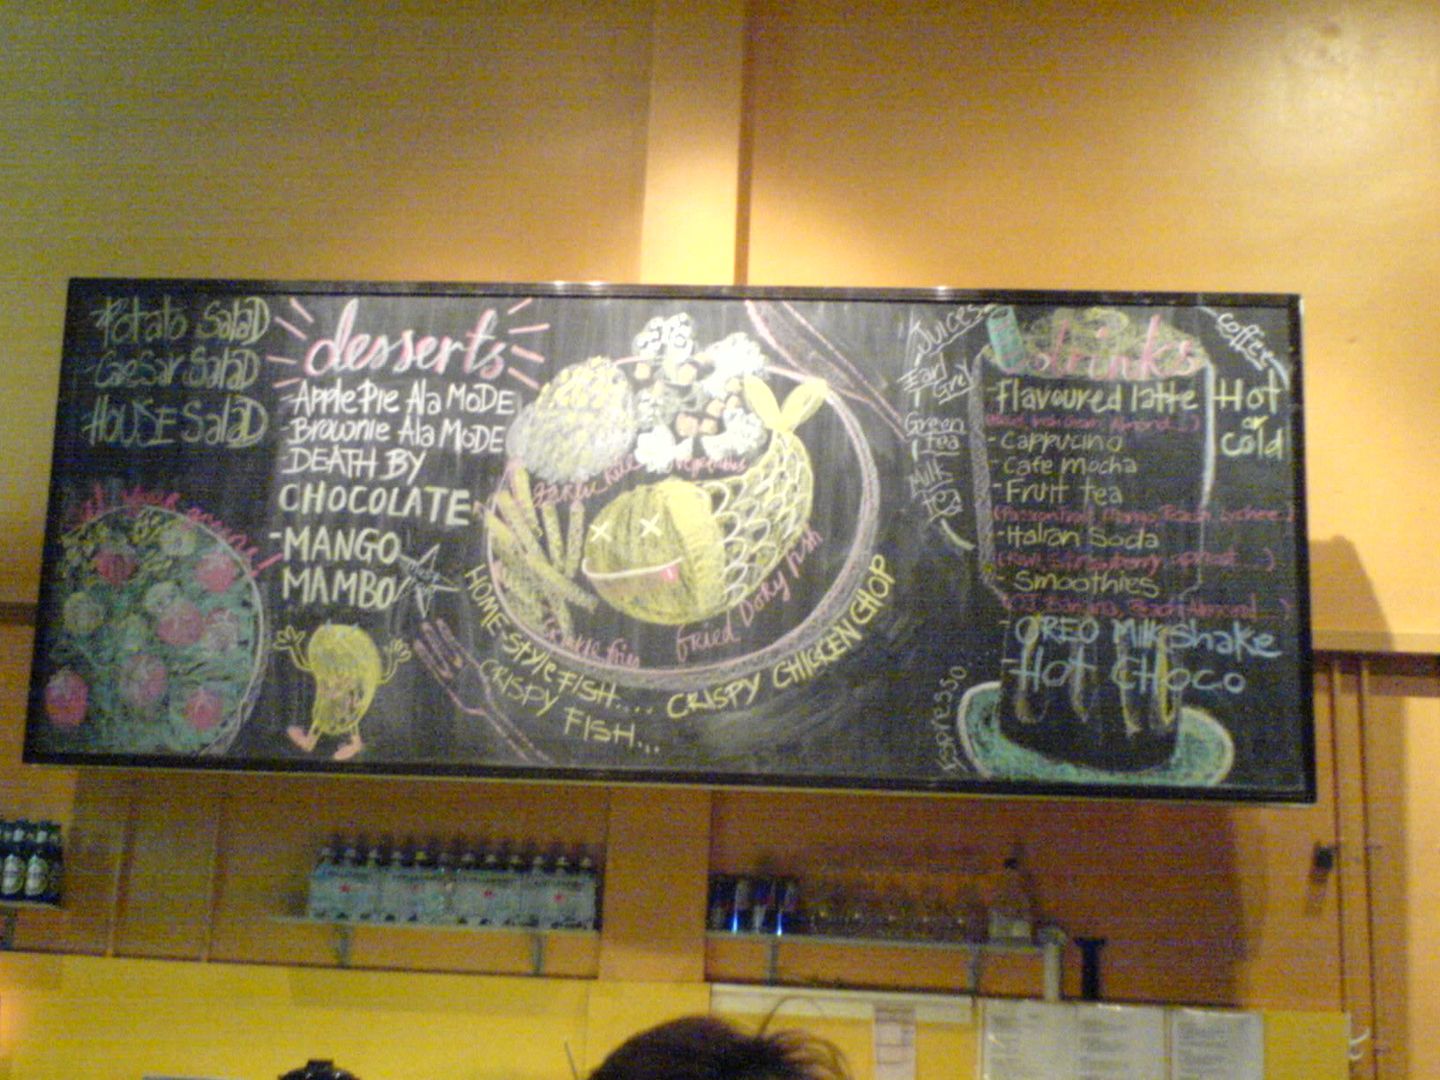 Potato Salad
Caesar Salad
House Salad
desserts
Apple Pie Ala MODE
Brownie Ala MODE
DEATH BY
CHOCOLATE
-MANGO
MAMBO
garlic rice
vegetables
Fried Dory fish
HOMESTYLE FISH....
CRISPY FISH...
CRISPY CHICKEN CHOP
Juices
Earl Grey
Green tea
Milk Tea
Espresso
drinks
coffee
Hot
or
cold
-Flavoured latte
-Cappucino
-Cafe Mocha
-Fruit tea
-Italian Soda
-Smoothies
-OREO Milkshake
-Hot CHoco